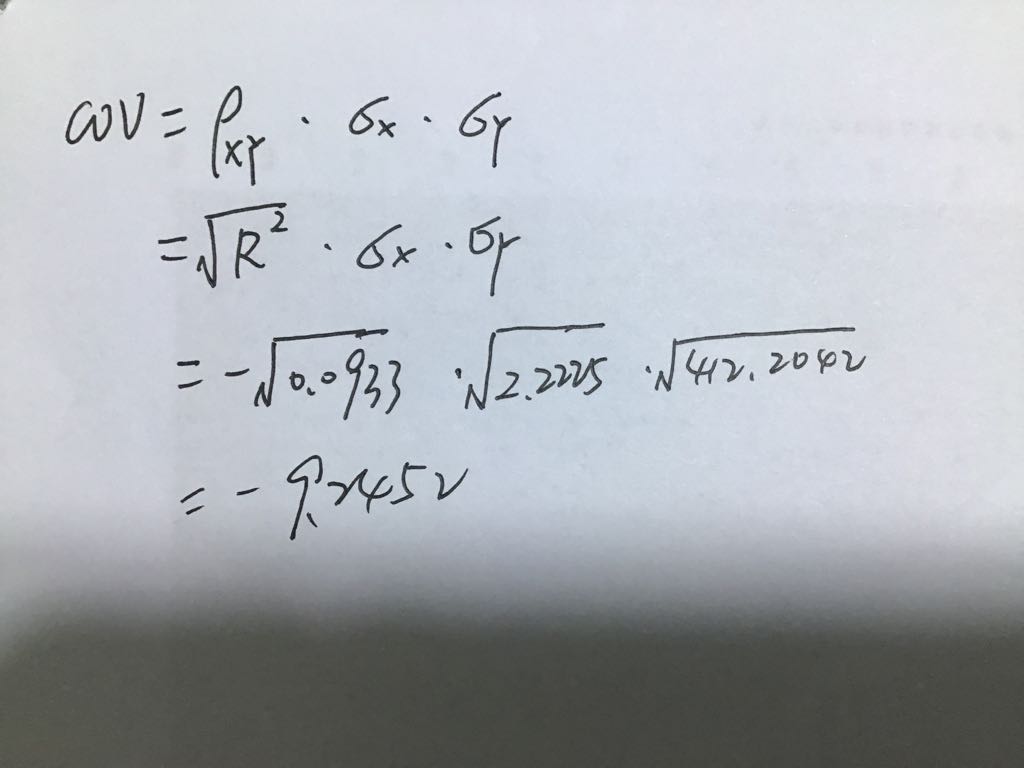 COV = ρxy · σx · σy
= √R² · σx · σy
= -√0.0933 · √2.2225 · √412.2042
= - 9.2452